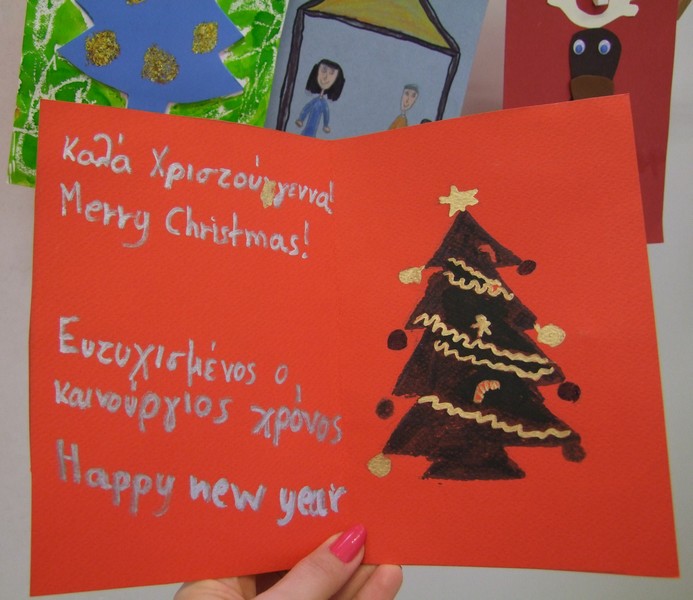 Καλά Χριστούγεννα!
Merry Christmas!
Ευτυχισμένος ο
καινούργιος χρόνος
Happy new year